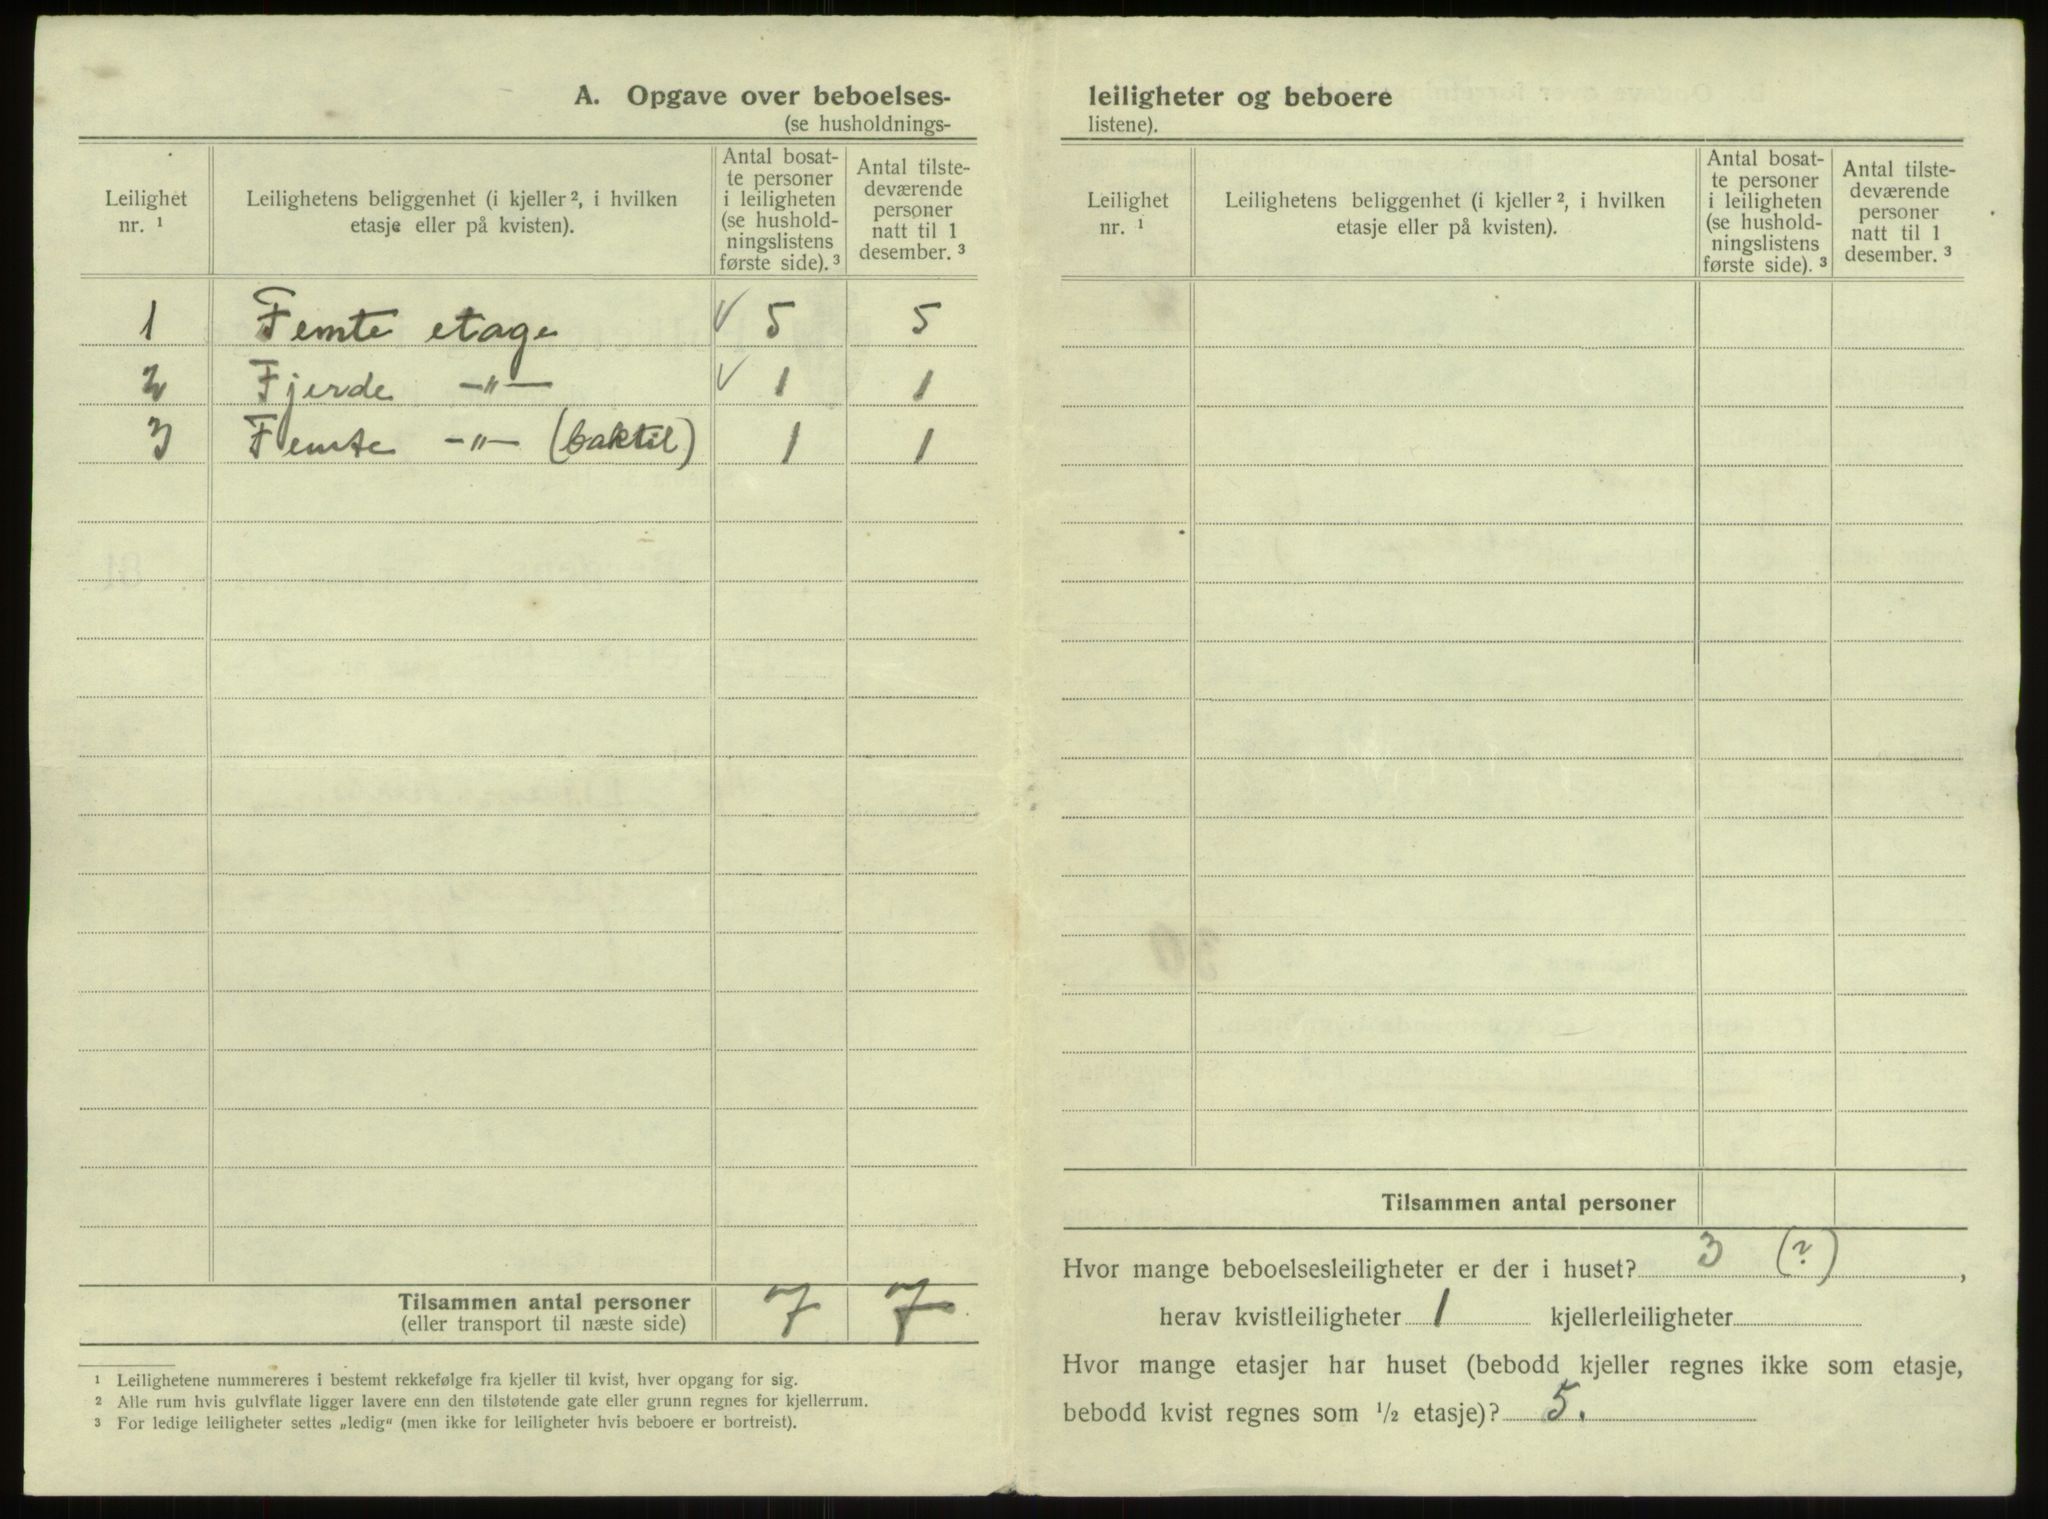 A. Opgave over beboelses-
(se husholdnings-
Leilighet nr. ¹
Leilighetens beliggenhet (i kjeller ², i hvilken etasje eller på kvisten).
Antal bosat-
te personer
i leiligheten
(se hushold-
ningslistens
første side). ³
Antal tilste-
deværende
personer
natt til 1
desember. ³
1 Femte etage √ 5 5
2 Fjerde –„– √ 1 1
3 Femte –„– (baktil) 1 1
Tilsammen antal personer 7 7
(eller transport til næste side)
¹ Leilighetene nummereres i bestemt rekkefølge fra kjeller til kvist, hver opgang for sig.
² Alle rum hvis gulvflate ligger lavere enn den tilstøtende gate eller grunn regnes for kjellerrum.
³ For ledige leiligheter settes „ledig“ (men ikke for leiligheter hvis beboere er bortreist).
leiligheter og beboere
listene).
Leilighet nr. ¹
Leilighetens beliggenhet (i kjeller ², i hvilken etasje eller på kvisten).
Antal bosat-
te personer
i leiligheten
(se hushold-
ningslistens
første side). ³
Antal tilste-
deværende
personer
natt til 1
desember. ³
Tilsammen antal personer
Hvor mange beboelsesleiligheter er der i huset? 3 (?),
herav kvistleiligheter 1 kjellerleiligheter
Hvor mange etasjer har huset (bebodd kjeller regnes ikke som etasje,
bebodd kvist regnes som ½ etasje)? 5.